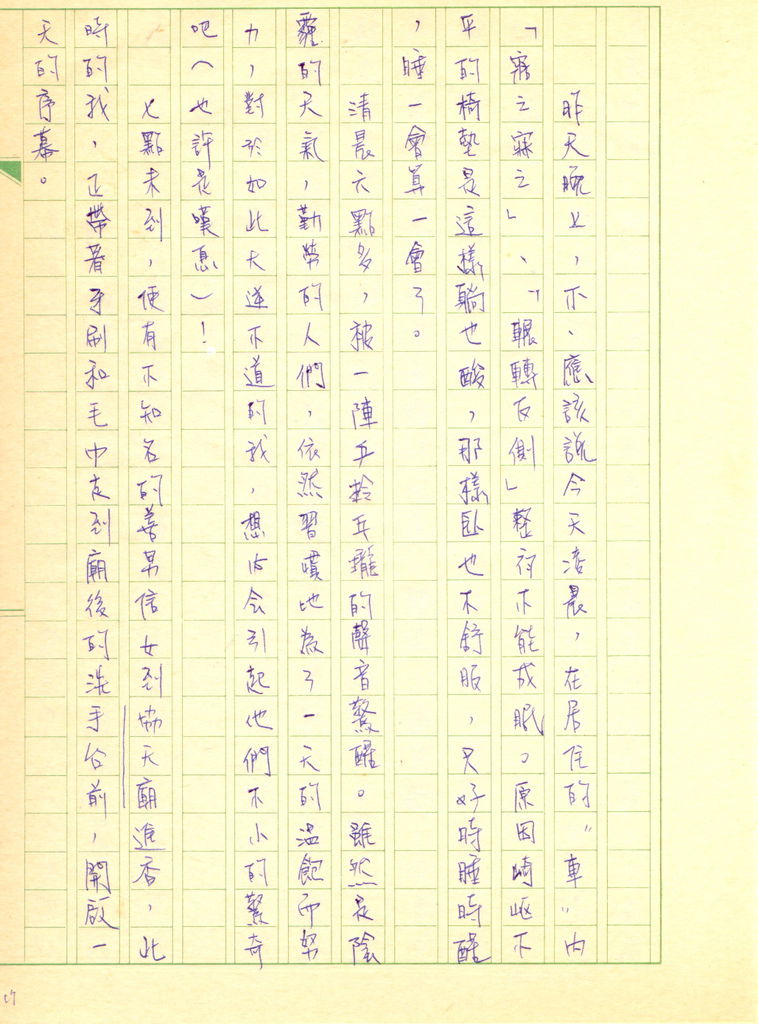 昨天晚上,不、應該說今天凌晨,在居住的"車"內
「寤之寐之」、「輾轉反側」整夜不能成眠。原因崎嶇不
平的椅墊是這樣躺也酸,那樣臥也不舒服,只好時睡時醒
,睡一會算一會了。
清晨六點多,被一陣乒羚乓瓏的聲音驚醒。雖然是陰
霾的天氣,勤勞的人們,依然習慣地為了一天的溫飽而努
力,對於如此大逆不道的我,想必會引起他們不小的驚奇
吧(也許是嘆息)!
七點未到,便有不知名的善男信女到協天廟進香,此
時的我,正帶著牙刷和毛巾走到廟後的洗手台前,開啟一
天的序幕。